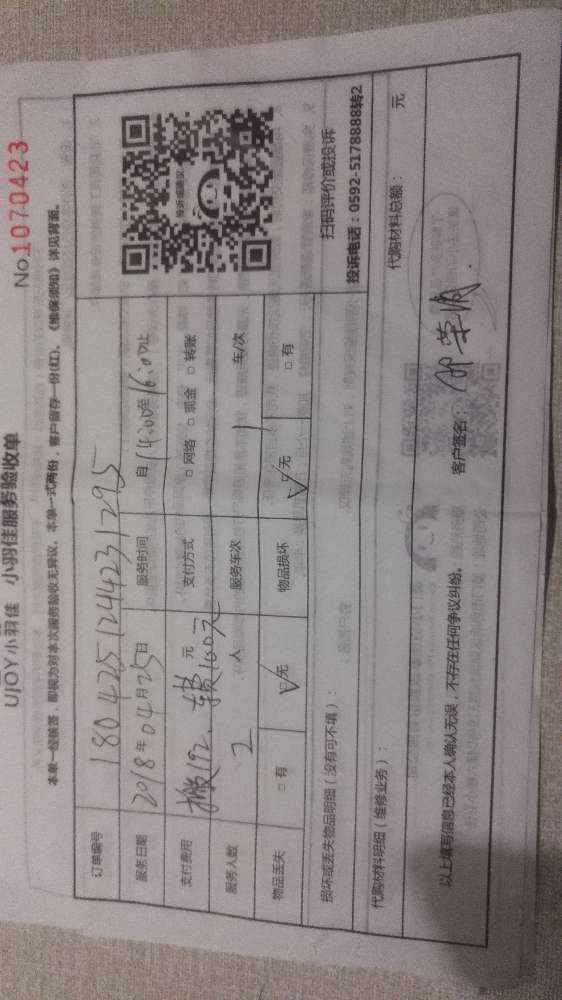 No.1070423
UJOY小羽佳 小羽佳服务验收单
本单一经核签,即视为对本次服务验收无异议。本单一式两份,客户留存一份(红)。《维保须知》详见背面。
订单编号 1804251244231295
服务日期 2018年04月25日 服务时间 自14:00至16:00止
支付费用 搬192、楼100元 元 支付方式 □网络 □现金 □转账
服务人数 2 人 服务车次 1 车/次
物品丢失 □有 ☑无 物品损坏 ☑无 □有
投诉或建议
扫码评价或投诉
投诉电话:0592-5178888转2
损坏或丢失物品明细(没有可不填):
代购材料明细(维修业务): 代购材料总额: 元
以上填写信息已经本人确认无误,不存在任何争议纠纷。 客户签名: